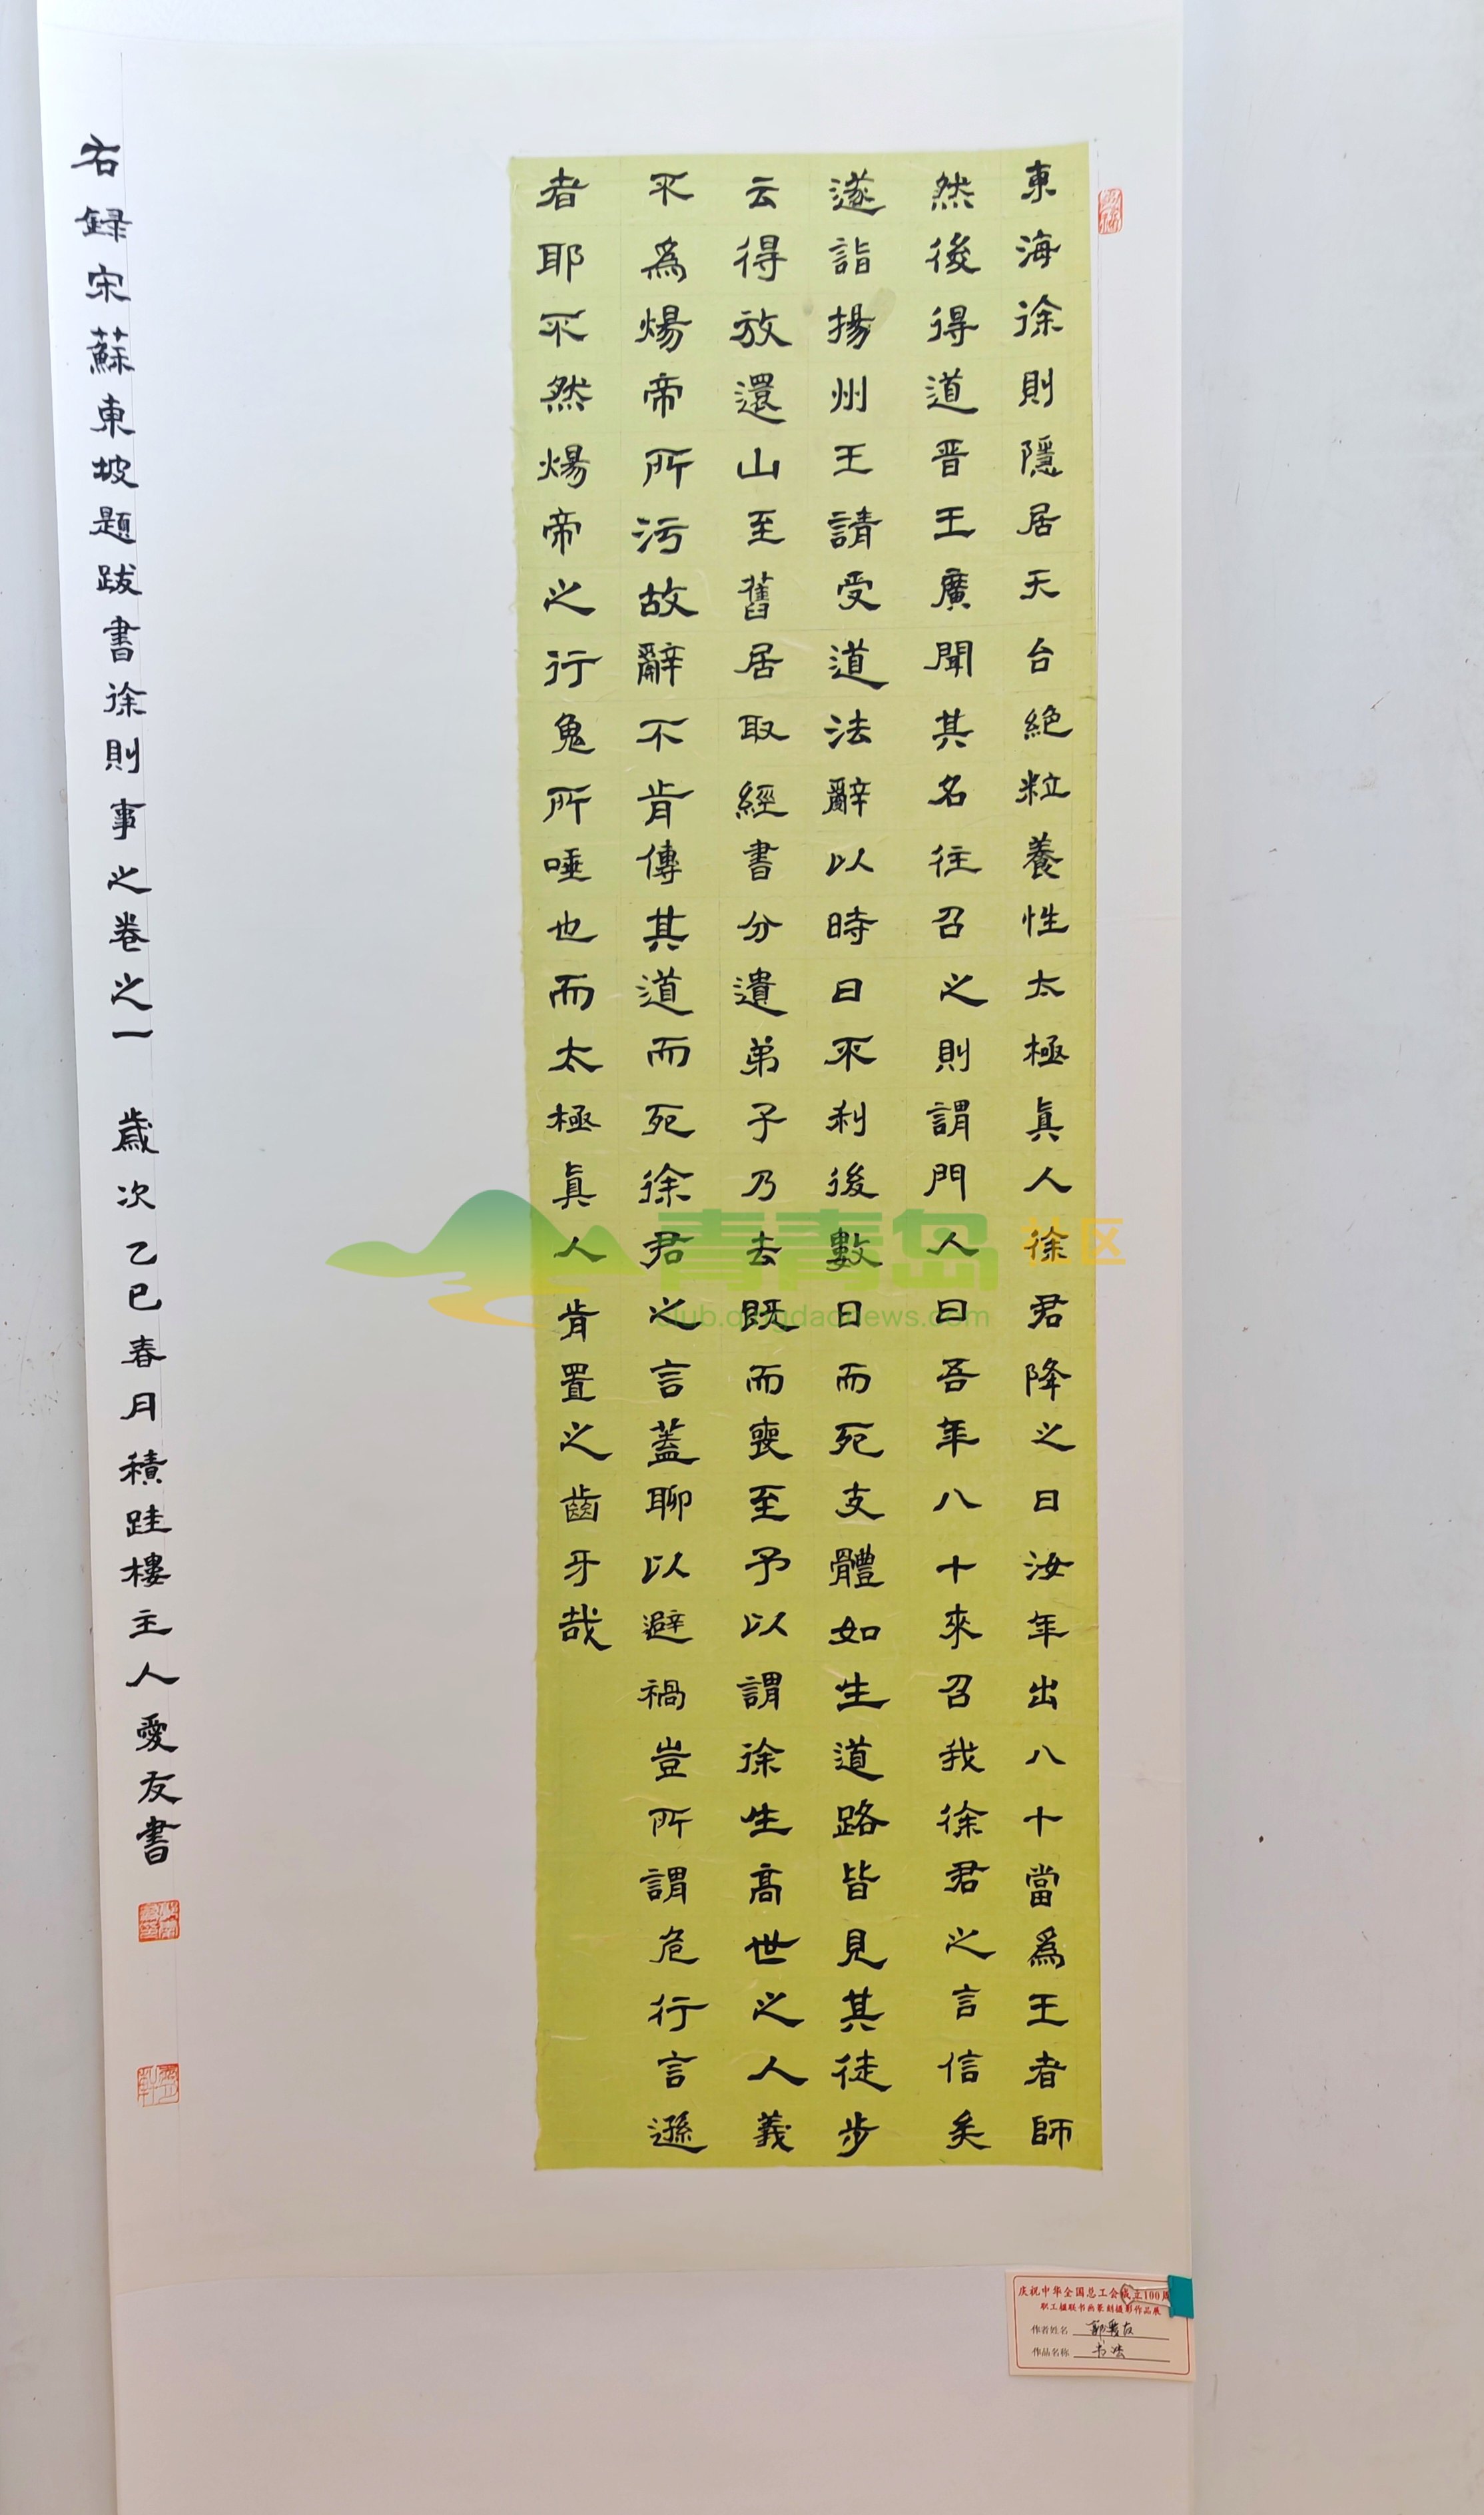 東海徐則隱居天台絶粒養性太極眞人徐君降之曰汝年出八十當爲王者師
然後得道晋王廣聞其名往召之則謂門人曰吾年八十來召我徐君之言信矣
遂詣揚州王請受道法辭以時日不利後數日而死支體如生道路皆見其徒步
云得放還山至舊居取經書分遺弟子乃去既而喪至予以謂徐生高世之人義
不爲煬帝所污故辭不肯傳其道而死徐君之言蓋聊以避禍豈所謂危行言遜
者耶不然煬帝之行鬼所唾也而太極眞人肯置之齒牙哉
右録宋蘇東坡題跋書徐則事之卷之一 歲次乙巳春月積跬樓主人愛友書
青青岛 社区
club.qingdaonews.com
庆祝中华全国总工会成立100周
职工楹联书画篆刻摄影作品展
作者姓名 郭爱友
作品名称 书法